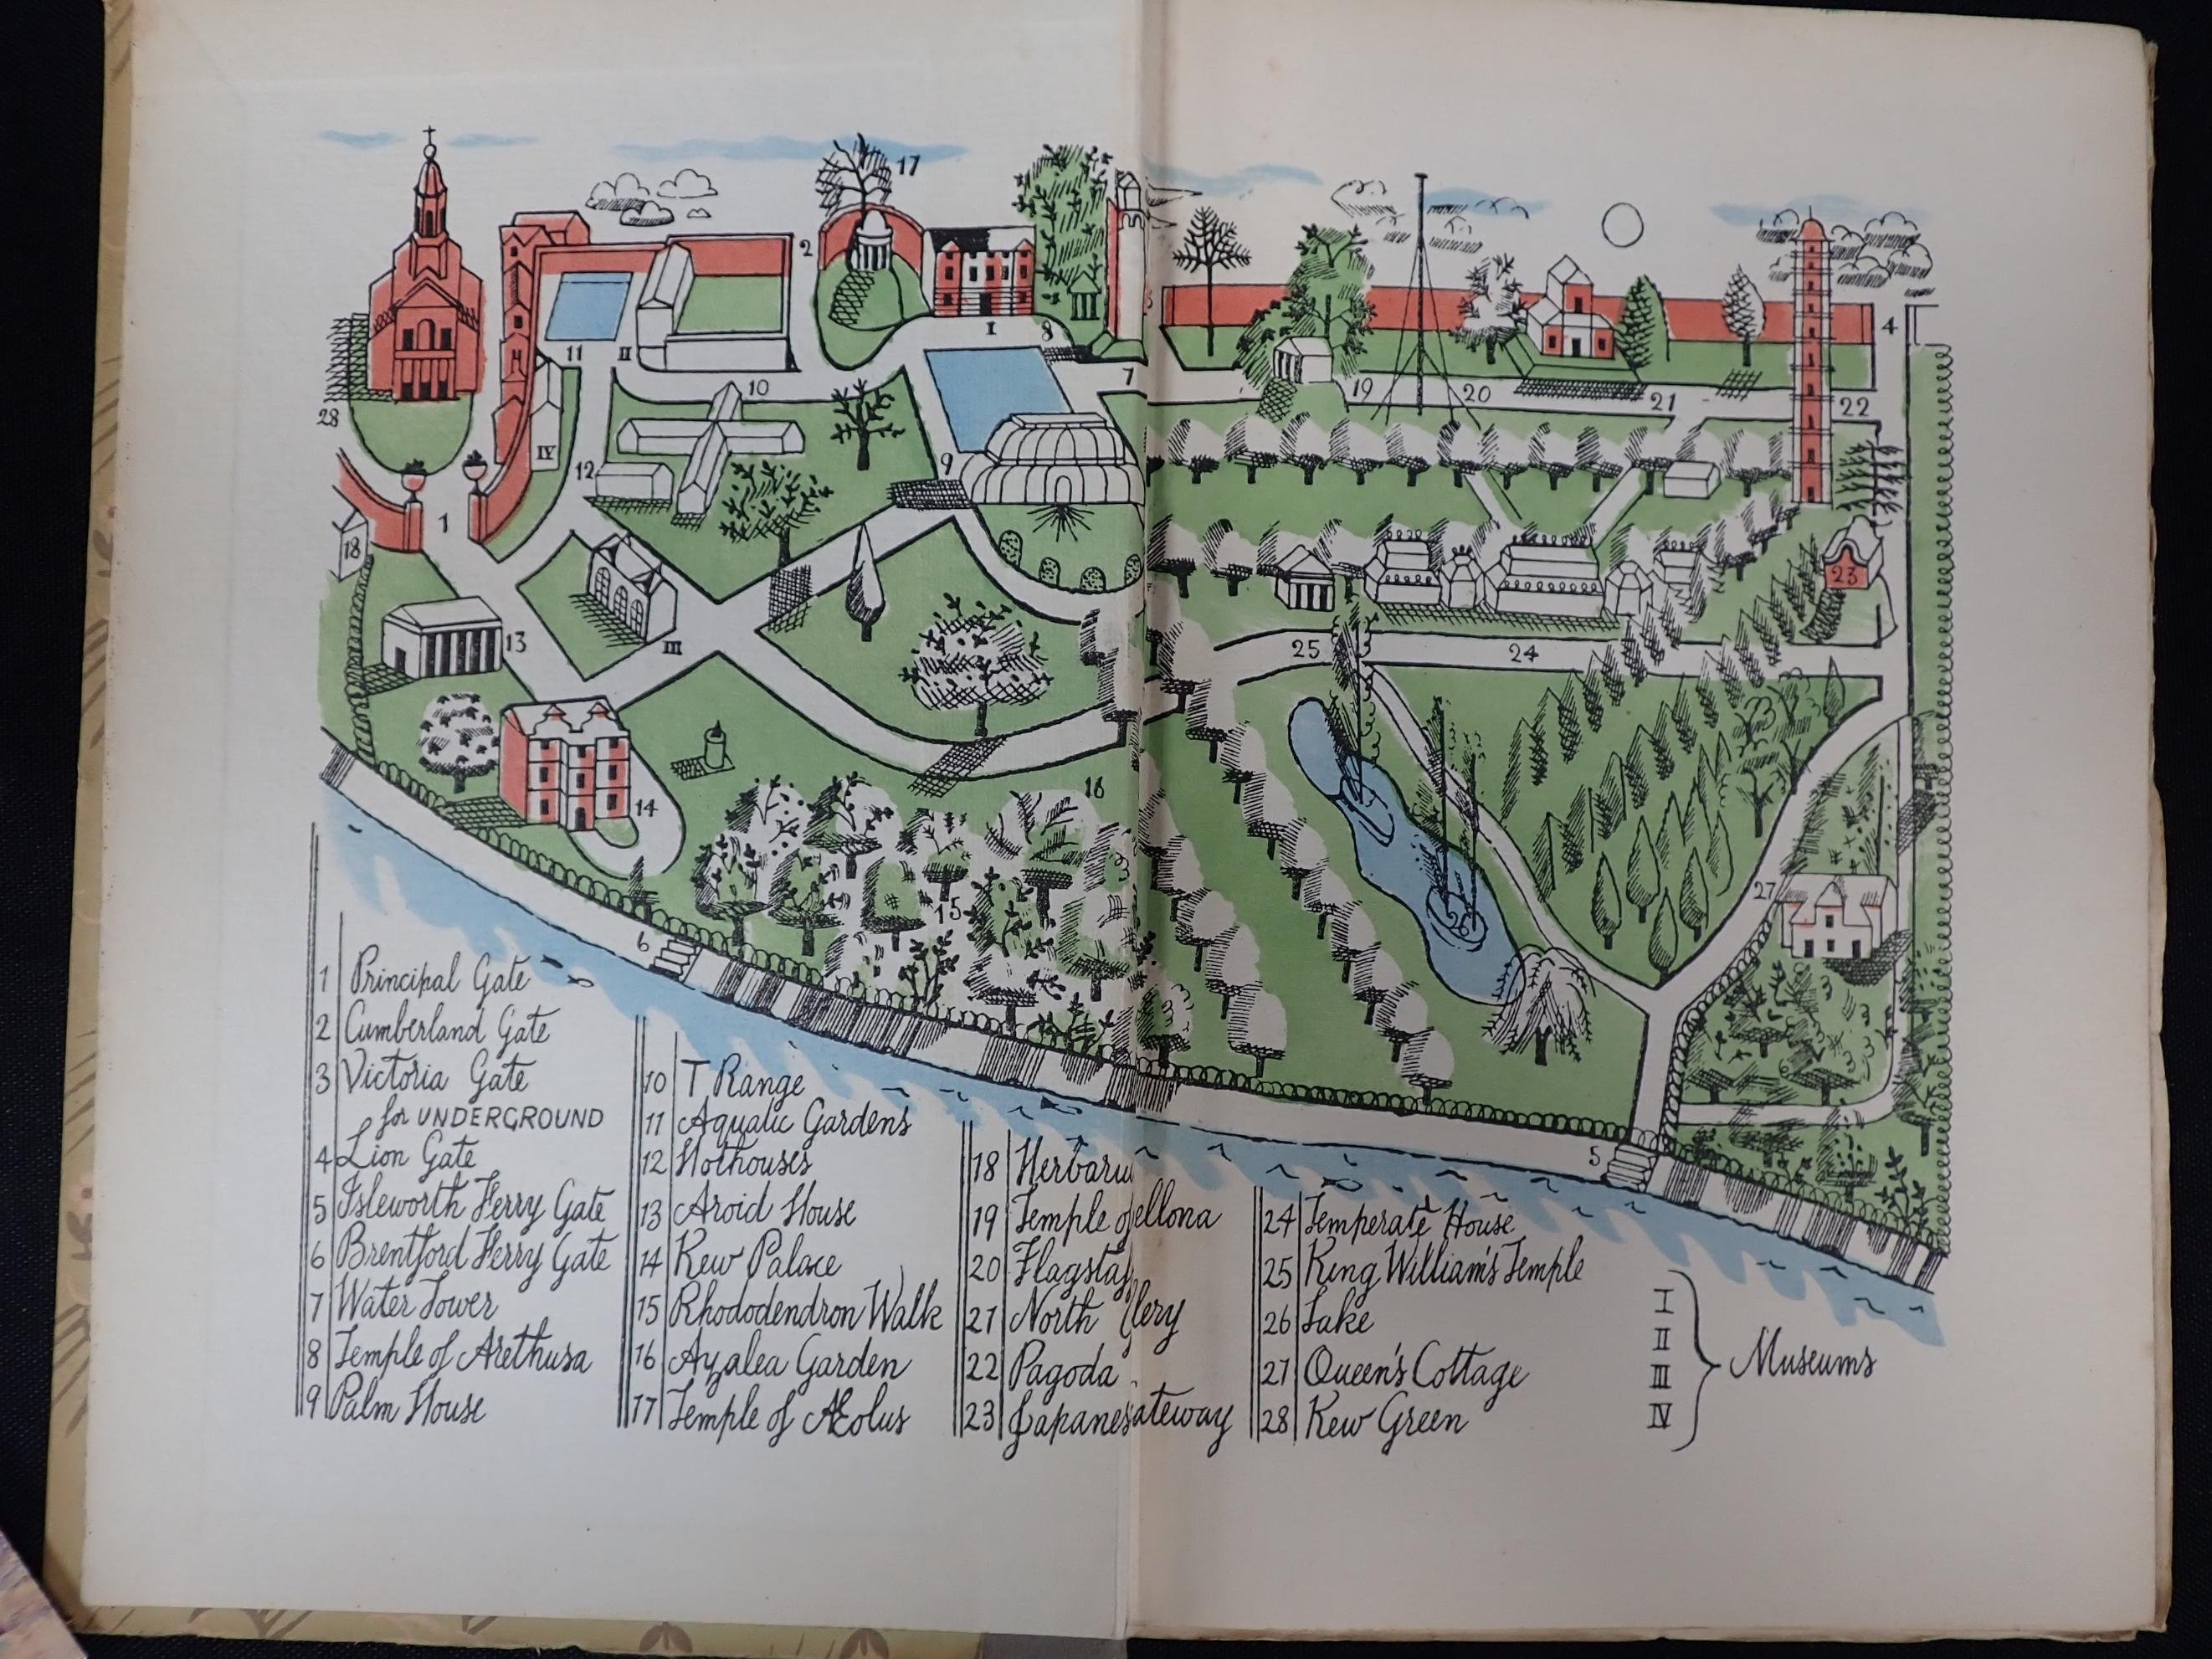 17
2
I
8
7
3
4
11
II
10
19
20
21
22
28
IV
12
9
1
18
23
13
III
25
24
14
16
15
27
6
5
1 Principal Gate
2 Cumberland Gate
3 Victoria Gate
for UNDERGROUND
4 Lion Gate
5 Isleworth Ferry Gate
6 Brentford Ferry Gate
7 Water Tower
8 Temple of Arethusa
9 Palm House
10 T Range
11 Aquatic Gardens
12 Hothouses
13 Aroid House
14 Kew Palace
15 Rhododendron Walk
16 Azalea Garden
17 Temple of Æolus
18 Herbariu
19 Temple of ellona
20 Flagstaf
21 North llery
22 Pagoda
23 Japanes ateway
24 Temperate House
25 King William's Temple
26 Lake
27 Queen's Cottage
28 Kew Green
I
II
III
IV
Museums